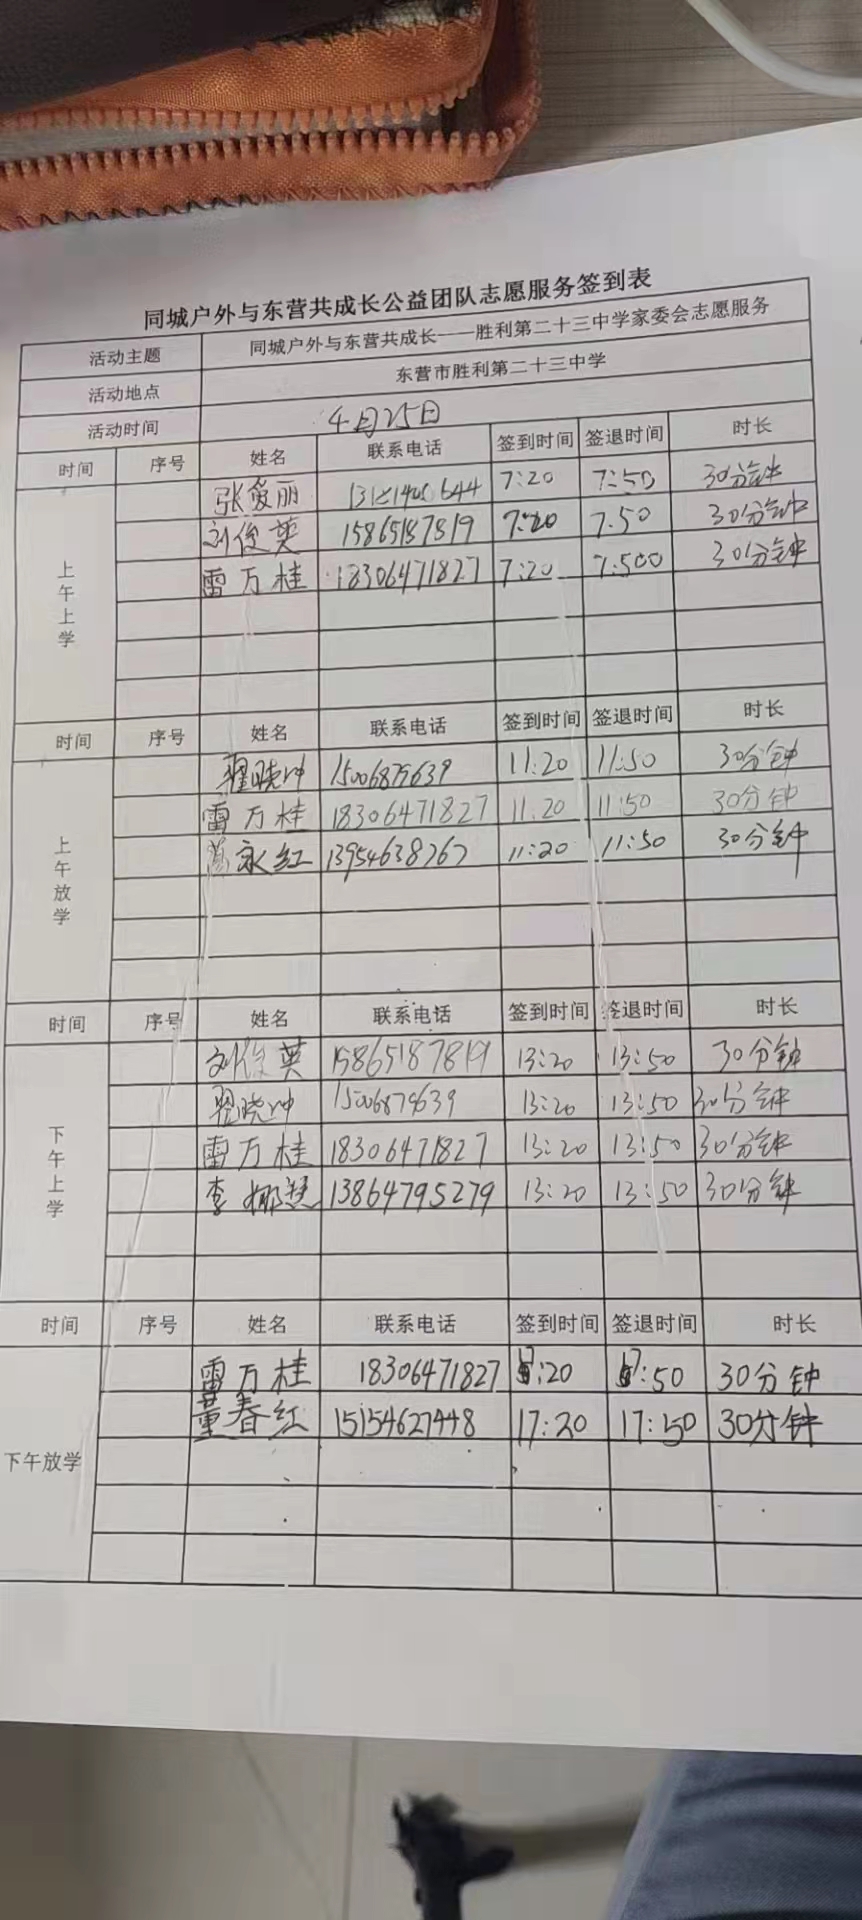 同城户外与东营共成长公益团队志愿服务签到表
活动主题 同城户外与东营共成长——胜利第二十三中学家委会志愿服务
活动地点 东营市胜利第二十三中学
活动时间 4月25日
时间 序号 姓名 联系电话 签到时间 签退时间 时长
上午上学
张爱丽 7:20 7:50 30分钟
刘俊英 15865187819 7:20 7.50 30分钟
雷万桂 18306471827 7:20 7:500 30分钟
时间 序号 姓名 联系电话 签到时间 签退时间 时长
上午放学
翟晓坤 11:20 11:50 30分钟
雷万桂 18306471827 11.20 11:50 30分钟
永红 13954638767 11:20 11:50 30分钟
时间 序号 姓名 联系电话 签到时间 签退时间 时长
下午上学
刘俊英 15865187819 13:20 13:50 30分钟
翟晓坤 13:20 13:50 30分钟
雷万桂 18306471827 13:20 13:50 30分钟
李 13864795279 13:20 13:50 30分钟
时间 序号 姓名 联系电话 签到时间 签退时间 时长
下午放学
雷万桂 18306471827 17:20 17:50 30分钟
董春红 15154627448 17:20 17:50 30分钟